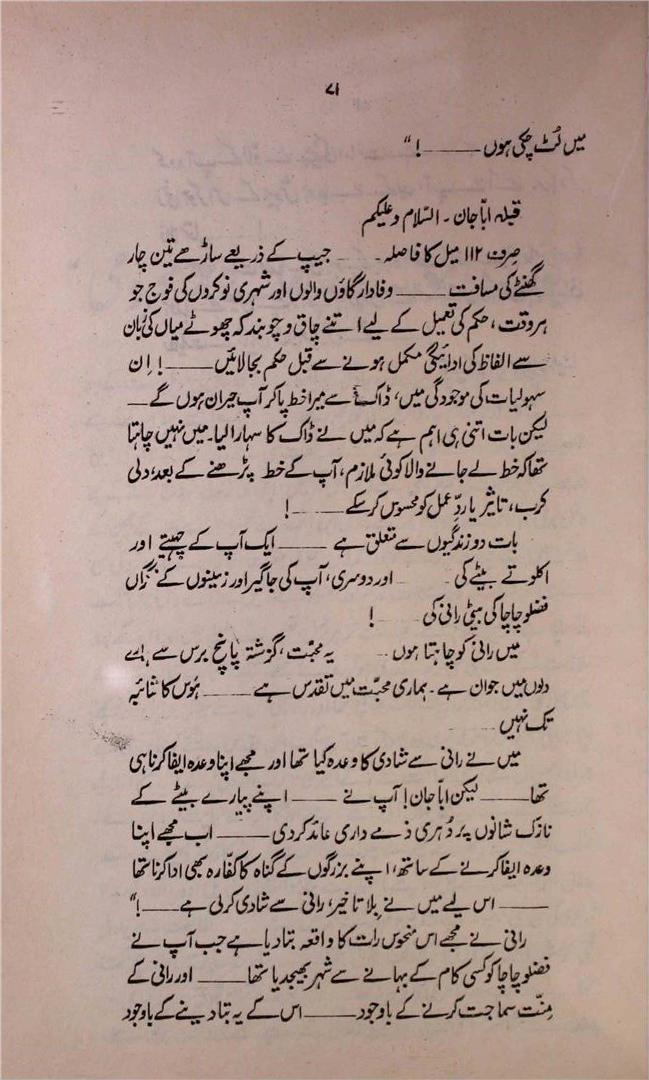 ۷۱
میں لُٹ چکی ہوں ــــــ !"
قبلہ ابّا جان ۔ السّلام وعلیکم
صرف ۱۱۲ میل کا فاصلہ۔ جیپ کے ذریعے ساڑھے تین چار
گھنٹے کی مسافت ــــــ وفادار گاؤں والوں اور شہری نوکروں کی فوج جو
ہر وقت، حکم کی تعمیل کے لیے اتنے چاق و چوبند کہ چھوٹے میاں کی زبان
سے الفاظ کی ادائیگی مکمل ہونے سے قبل حکم بجا لائیں ــــــ! اِن
سہولیات کی موجودگی میں، ڈاک سے میرا خط پا کر آپ حیران ہوں گے ــ
لیکن بات اتنی ہی اہم ہے کہ میں نے ڈاک کا سہارا لیا۔ میں نہیں چاہتا
تھا کہ خط لے جانے والا کوئی ملازم، آپ کے خط پڑھنے کے بعد، دلی
کرب، تاثیر یا ردِّ عمل کو محسوس کر سکے ــــــ !
بات دو زندگیوں سے متعلق ہے ــــــ ایک آپ کے چہیتے اور
اکلوتے بیٹے کی اور دوسری، آپ کی جاگیر اور زمینوں کے نگراں
فضلو چاچا کی بیٹی رانی کی !
میں رانی کو چاہتا ہوں ۔ یہ محبّت، گزشتہ پانچ برس سے ہمارے
دلوں میں جوان ہے۔ ہماری محبّت میں تقدس ہے ــــــ ہوس کا شائبہ
تک نہیں
میں نے رانی سے شادی کا وعدہ کیا تھا اور مجھے اپنا وعدہ ایفا کرنا ہی
تھا ــــــ لیکن ابّا جان! آپ نے ــــــ اپنے پیارے بیٹے کے
نازک شانوں پر دُہری ذمے داری عائد کر دی ــــــ اب مجھے اپنا
وعدہ ایفا کرنے کے ساتھ، اپنے بزرگوں کے گناہ کا کفّارہ بھی ادا کرنا تھا
ــــــ اس لیے میں نے بلا تاخیر، رانی سے شادی کر لی ہے ــــــ!"
رانی نے مجھے اس منحوس رات کا واقعہ بتا دیا ہے جب آپ نے
فضلو چاچا کو کسی کام کے بہانے سے شہر بھیجدیا تھا ــــــ اور رانی کے
مِنّت سماجت کرنے کے باوجود ــــــ اس کے یہ بتا دینے کے باوجود